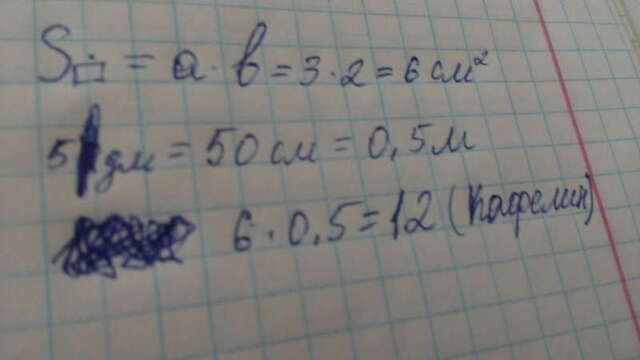 S▭ = a · b = 3 · 2 = 6 см²
5 дм = 50 см = 0,5 м
6 · 0,5 = 12 (кафелин)